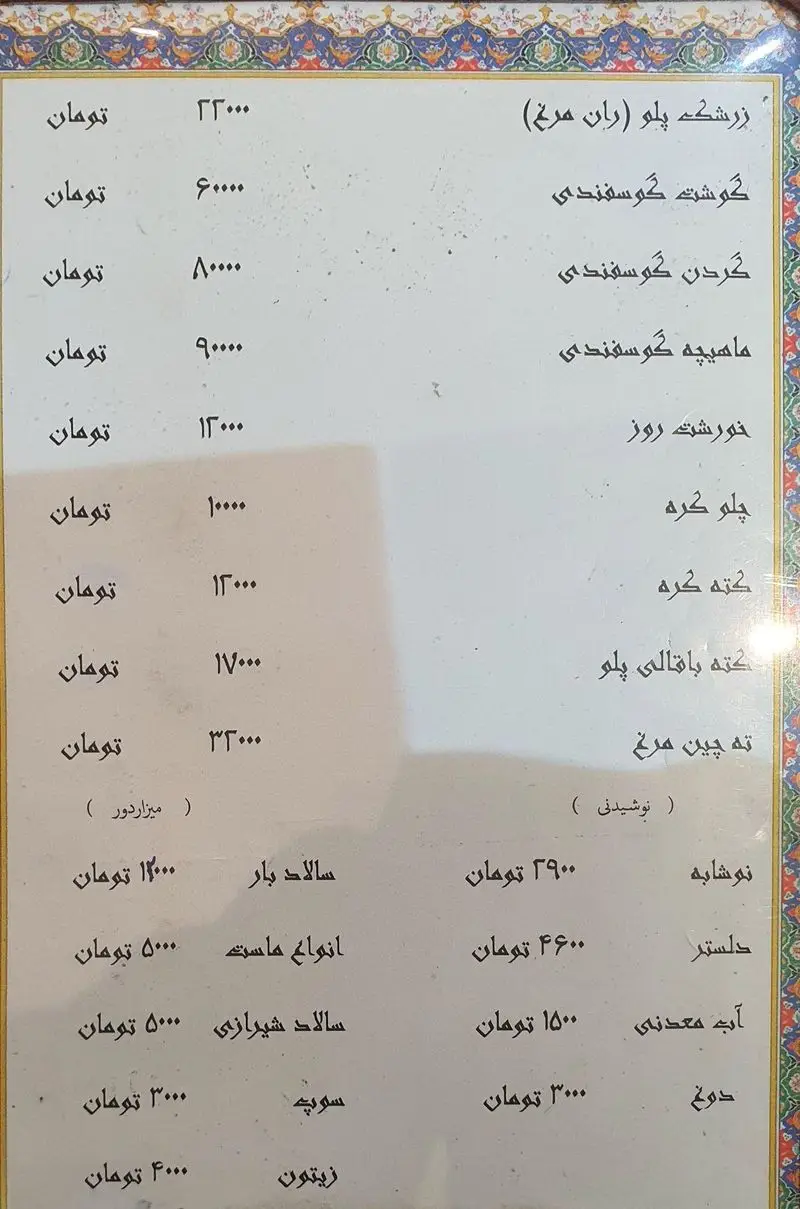 زرشک پلو (ران مرغ) ۲۲۰۰۰ تومان
گوشت گوسفندی ۶۰۰۰۰ تومان
گردن گوسفندی ۸۰۰۰۰ تومان
ماهیچه گوسفندی ۹۰۰۰۰ تومان
خورشت روز ۱۲۰۰۰ تومان
چلو کره ۱۰۰۰۰ تومان
کته کره ۱۲۰۰۰ تومان
کته باقالی پلو ۱۷۰۰۰ تومان
ته چین مرغ ۳۲۰۰۰ تومان
( نوشیدنی ) ( میزاردور )
نوشابه ۲۹۰۰ تومان سالاد بار تومان
دلستر ۴۶۰۰ تومان انواع ماست ۵۰۰۰ تومان
آب معدنی ۱۵۰۰ تومان سالاد شیرازی ۵۰۰۰ تومان
دوغ ۳۰۰۰ تومان سوپ ۳۰۰۰ تومان
زیتون ۴۰۰۰ تومان